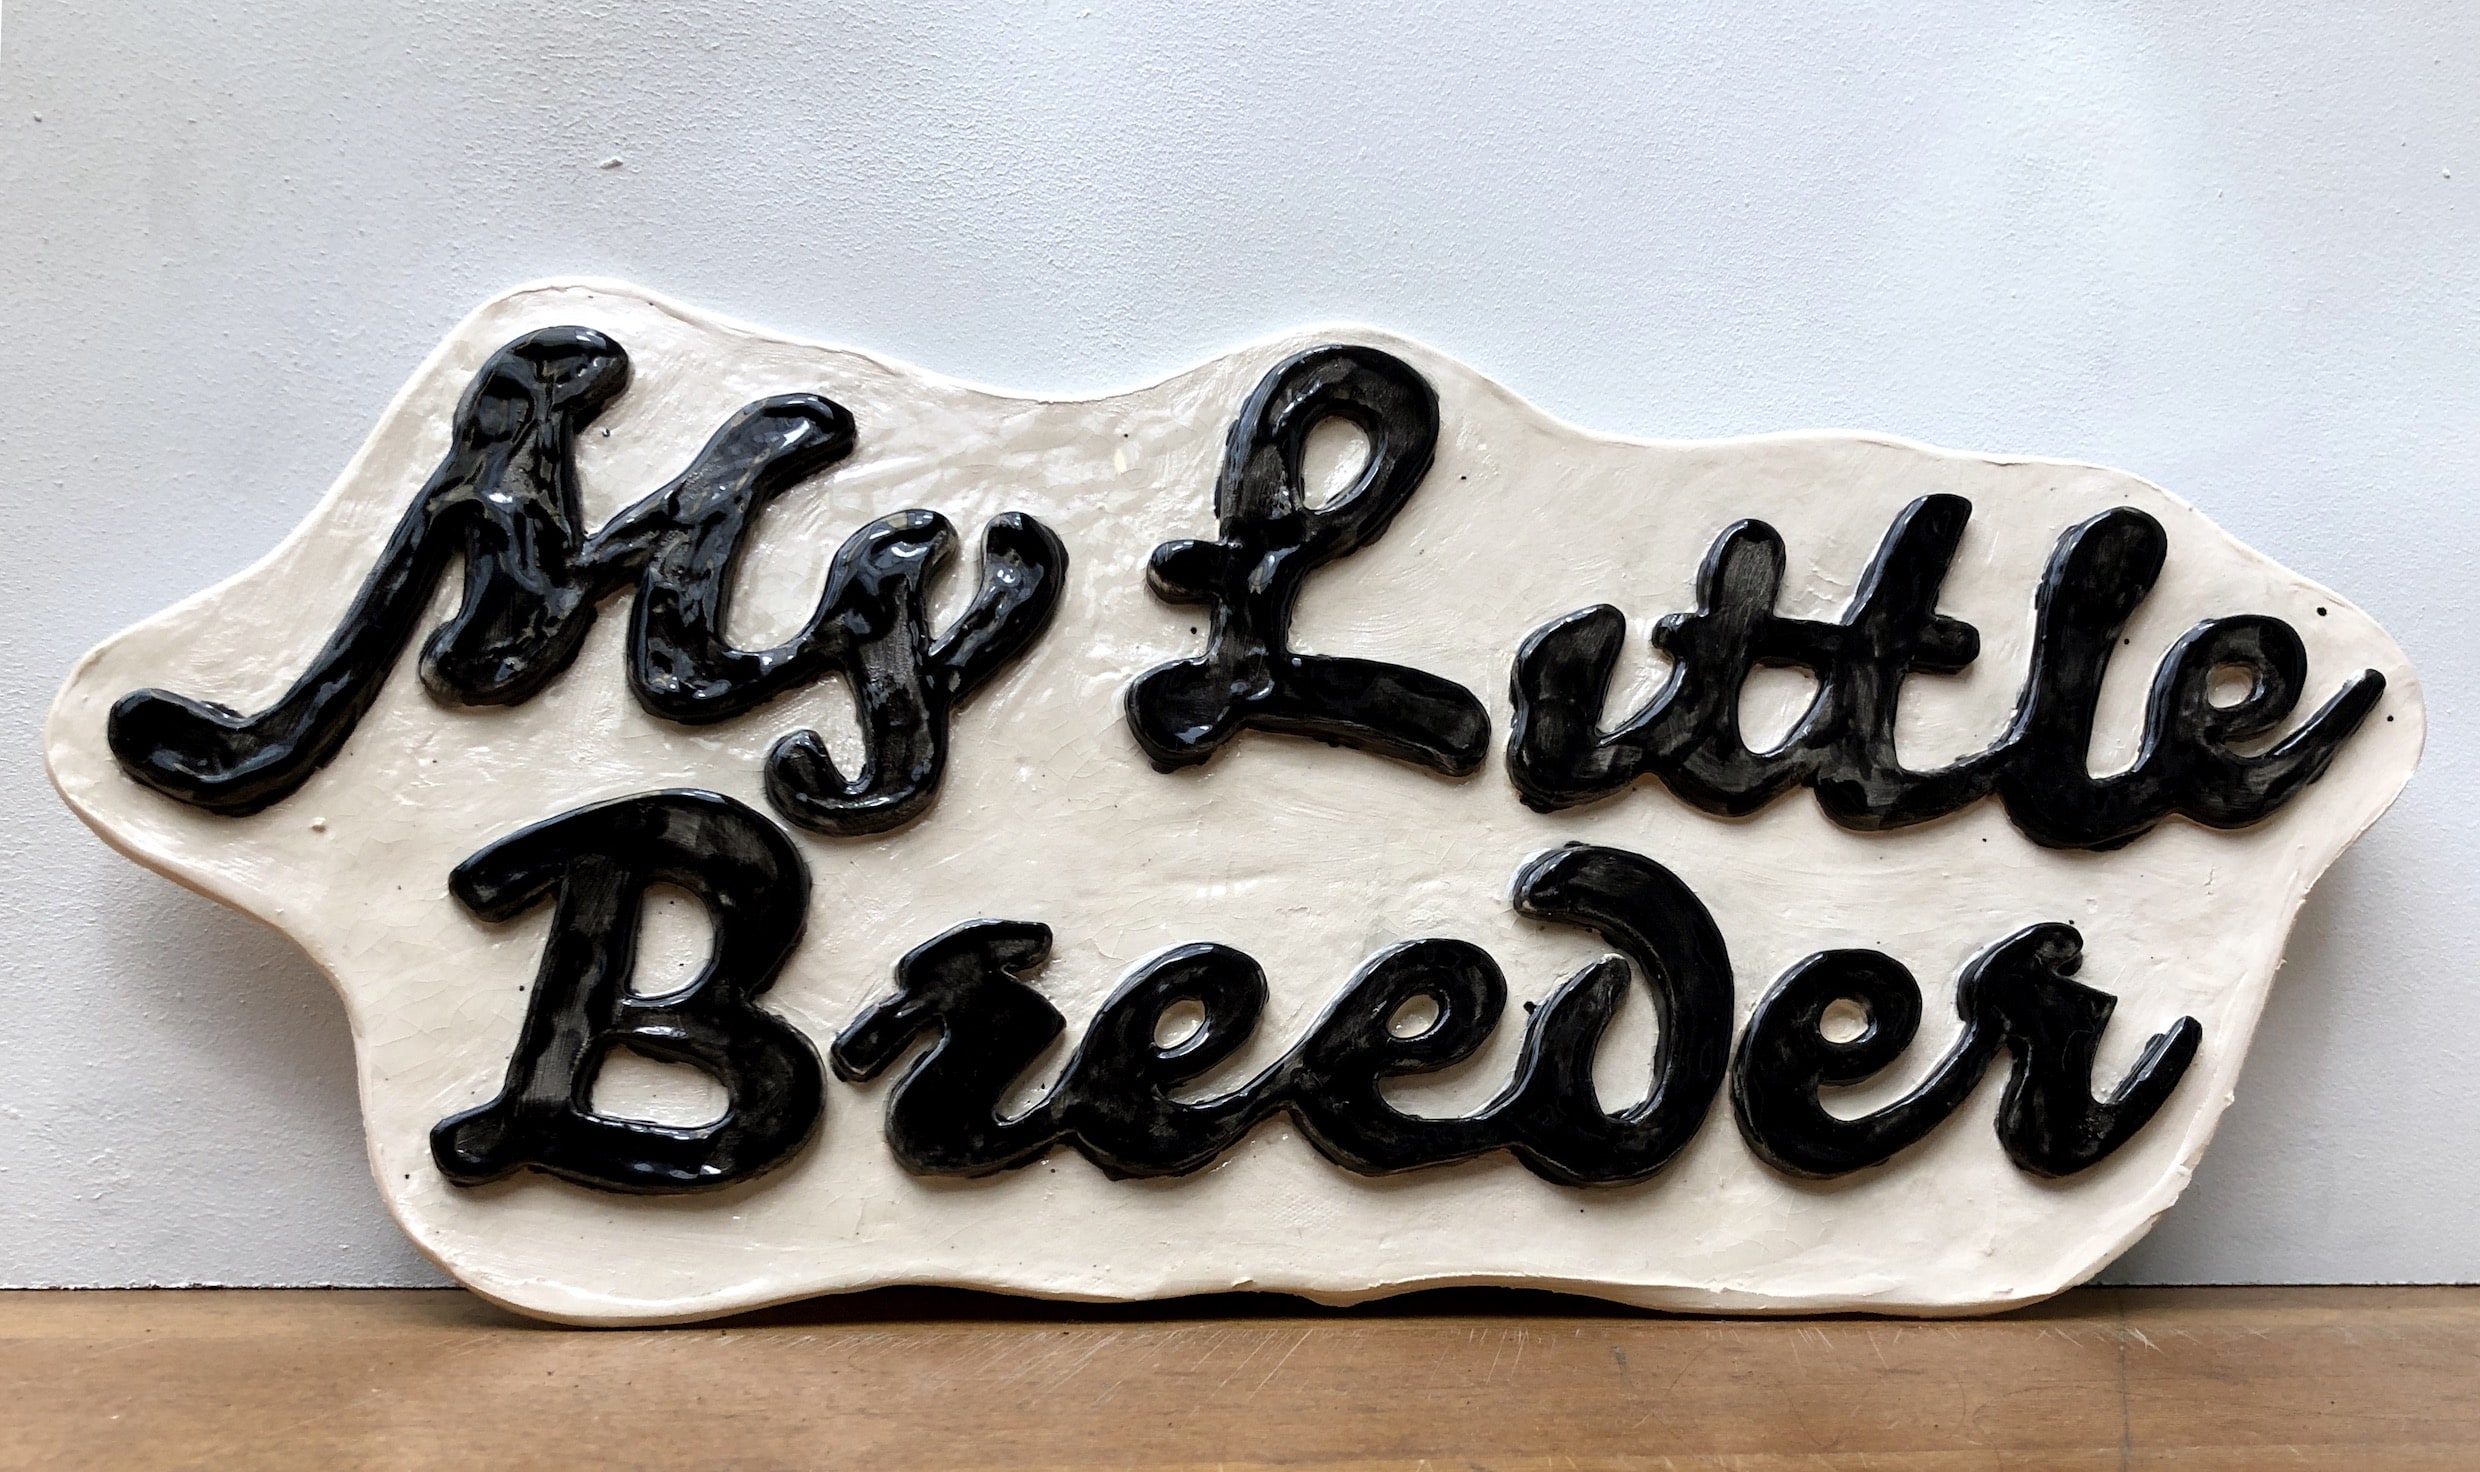 My Little
Breeder